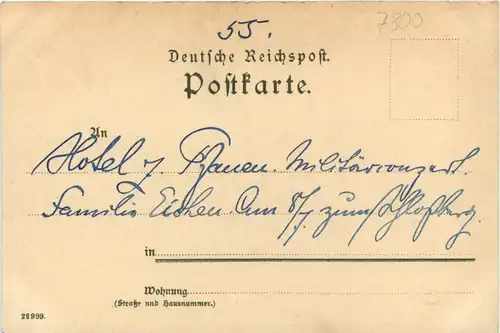 55.
7800
Deutsche Reichspost.
Postkarte.
An
Hotel z. Pfauen. Militärconzert.
Familie Eichen. Am 8/7. zum Schloßberg.
in
Wohnung
(Straße und Hausnummer.)
28999.